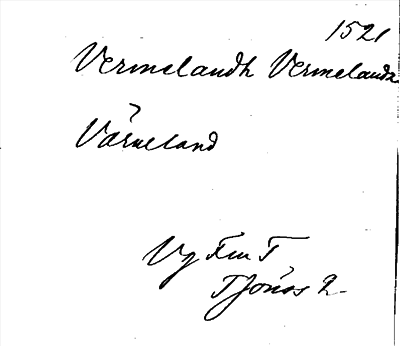 1521
Vermelandh Vermelandz
Värmeland
Vg Fm T
Tjönos 2